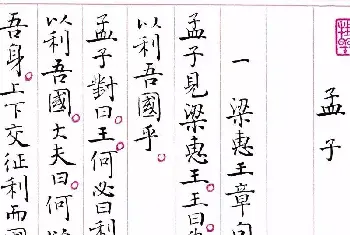 孟子
一 梁惠王章句
孟子見梁惠王。王曰。
以利吾國乎。
孟子對曰。王何必曰利
以利吾國。大夫曰。何以
吾身。上下交征利。而國